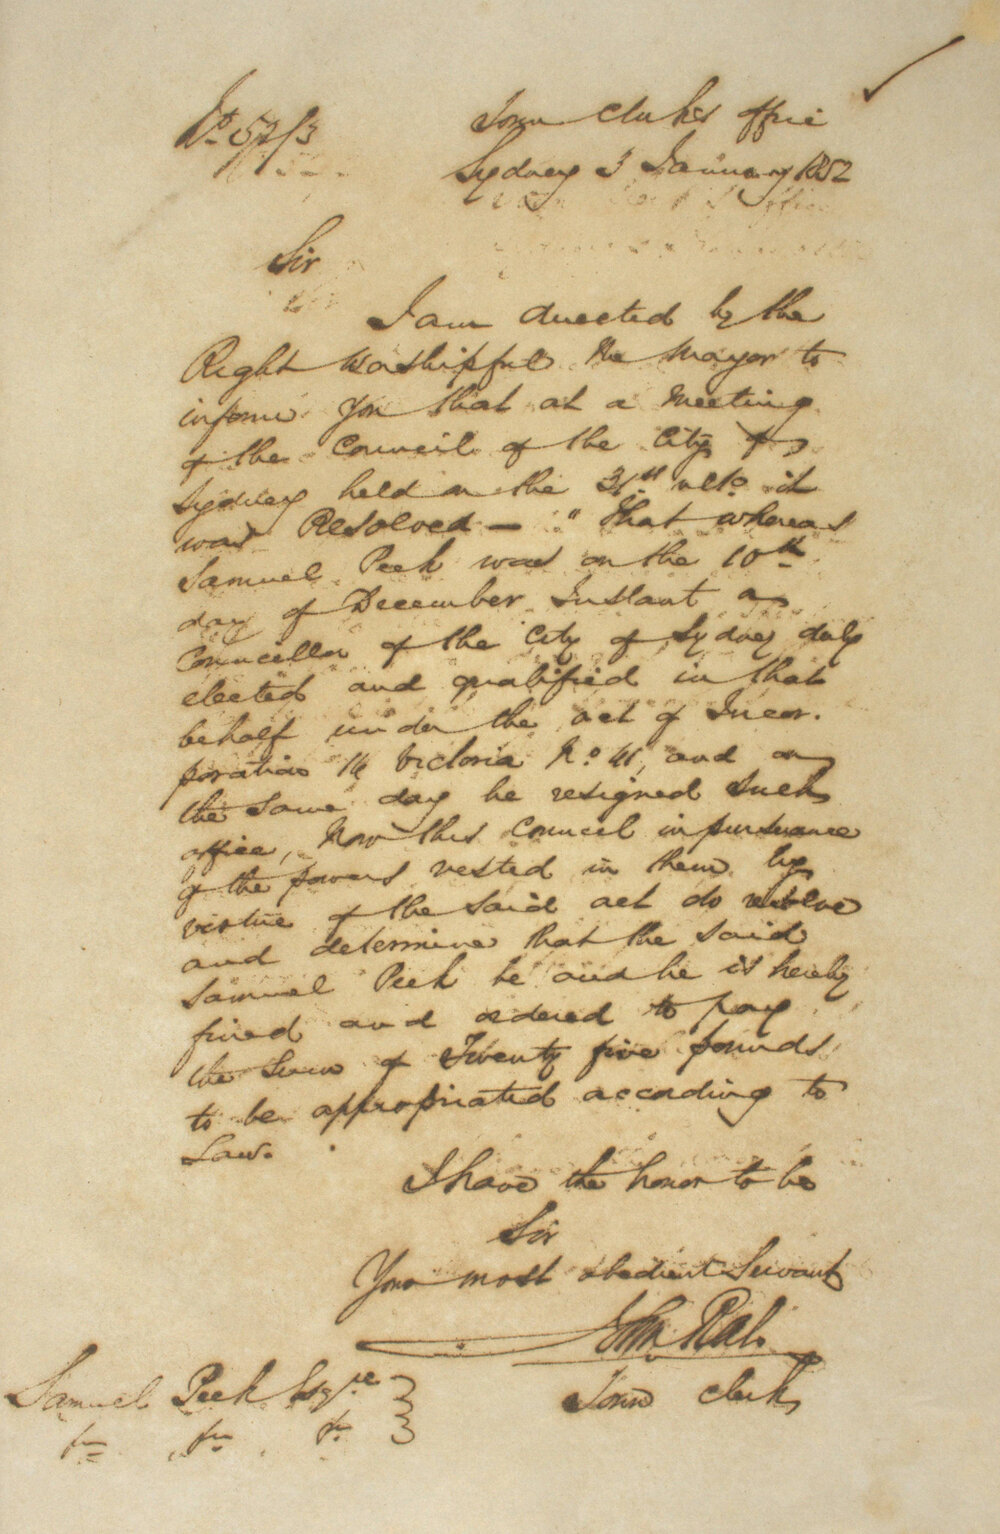 No. 52/3
Town Clerks Office
Sydney 3 January 1852
Sir
I am directed by the
Right Worshipful the Mayor to
inform you that at a Meeting
of the Council of the City of
Sydney held on the 31st ulto. it
was Resolved — "That whereas
Samuel Peek was on the 10th
day of December Instant a
Councillor of the City of Sydney duly
elected and qualified in that
behalf under the act of Incor.
poration 14 Victoria No. 41, and on
the same day he resigned such
office, Now this Council in pursuance
of the powers vested in them by
virtue of the said act do resolve
and determine that the said
Samuel Peek be and he is hereby
fined and ordered to pay
the Sum of Twenty five pounds
to be appropriated according to
Law.
I have the honor to be
Sir
Your most obedient Servant
John Rae
Town Clerk
Samuel Peek Esqre